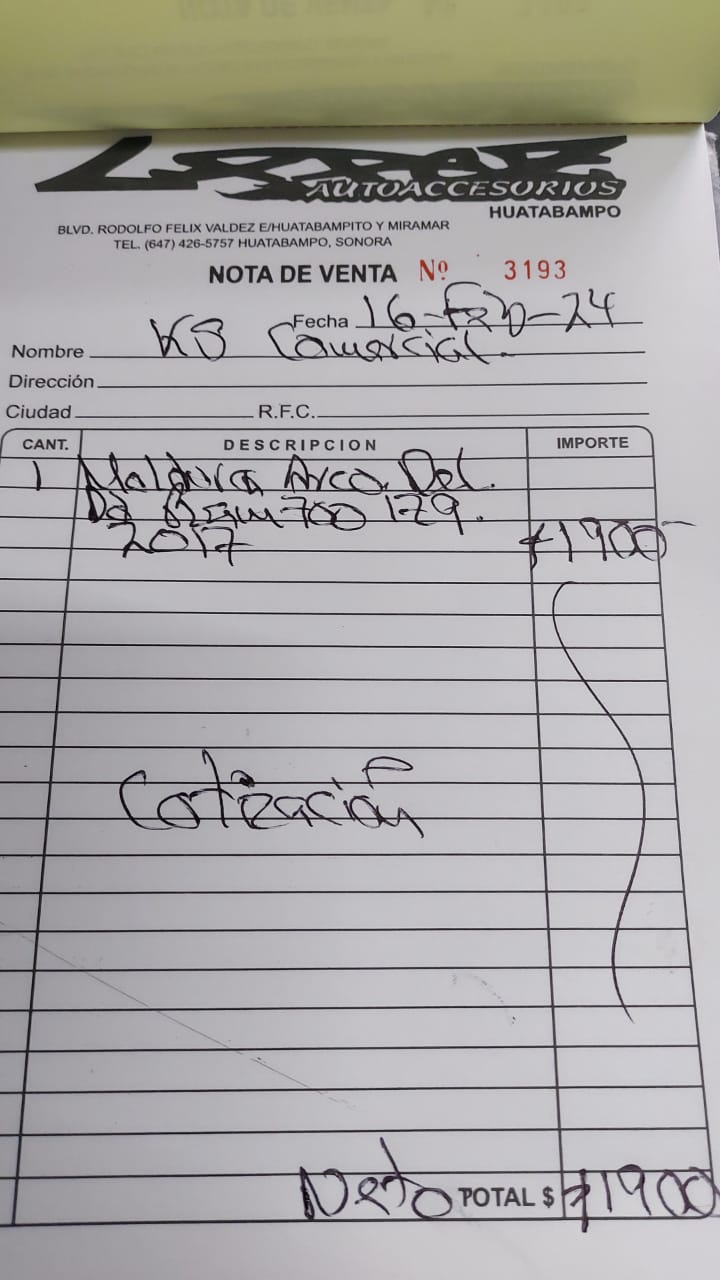 LOPEZ
AUTOACCESORIOS
HUATABAMPO
BLVD. RODOLFO FELIX VALDEZ E/HUATABAMPITO Y MIRAMAR
TEL. (647) 426-5757 HUATABAMPO, SONORA
NOTA DE VENTA Nº 3193
Fecha 16-Feb-24
Nombre KS Comercial.
Dirección
Ciudad R.F.C.
CANT. DESCRIPCION IMPORTE
1 Moldura Arco Del.
Da Ram 700
2017 $1900
Cotización
Neto TOTAL $ $1900